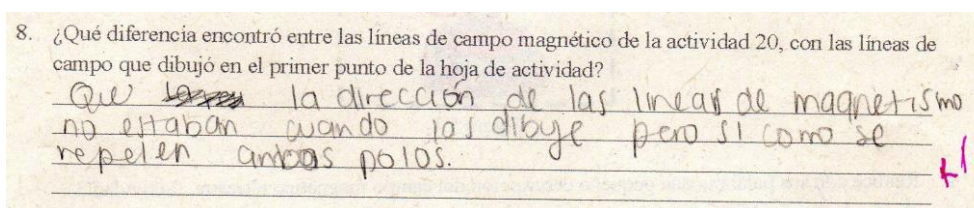 8. ¿Qué diferencia encontró entre las líneas de campo magnético de la actividad 20, con las líneas de
campo que dibujó en el primer punto de la hoja de actividad?
Que la dirección de las lineas de magnetismo
no estaban cuando las dibuje pero si como se
repelen ambos polos.